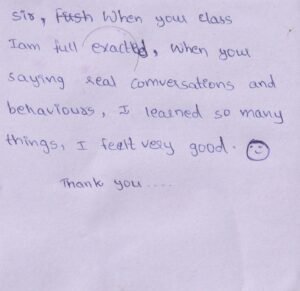 sir, fush When your class
Iam full exacted, when your
saying real comversations and
behaviours, I learned so many
things, I feelt very good.
Thank you ....